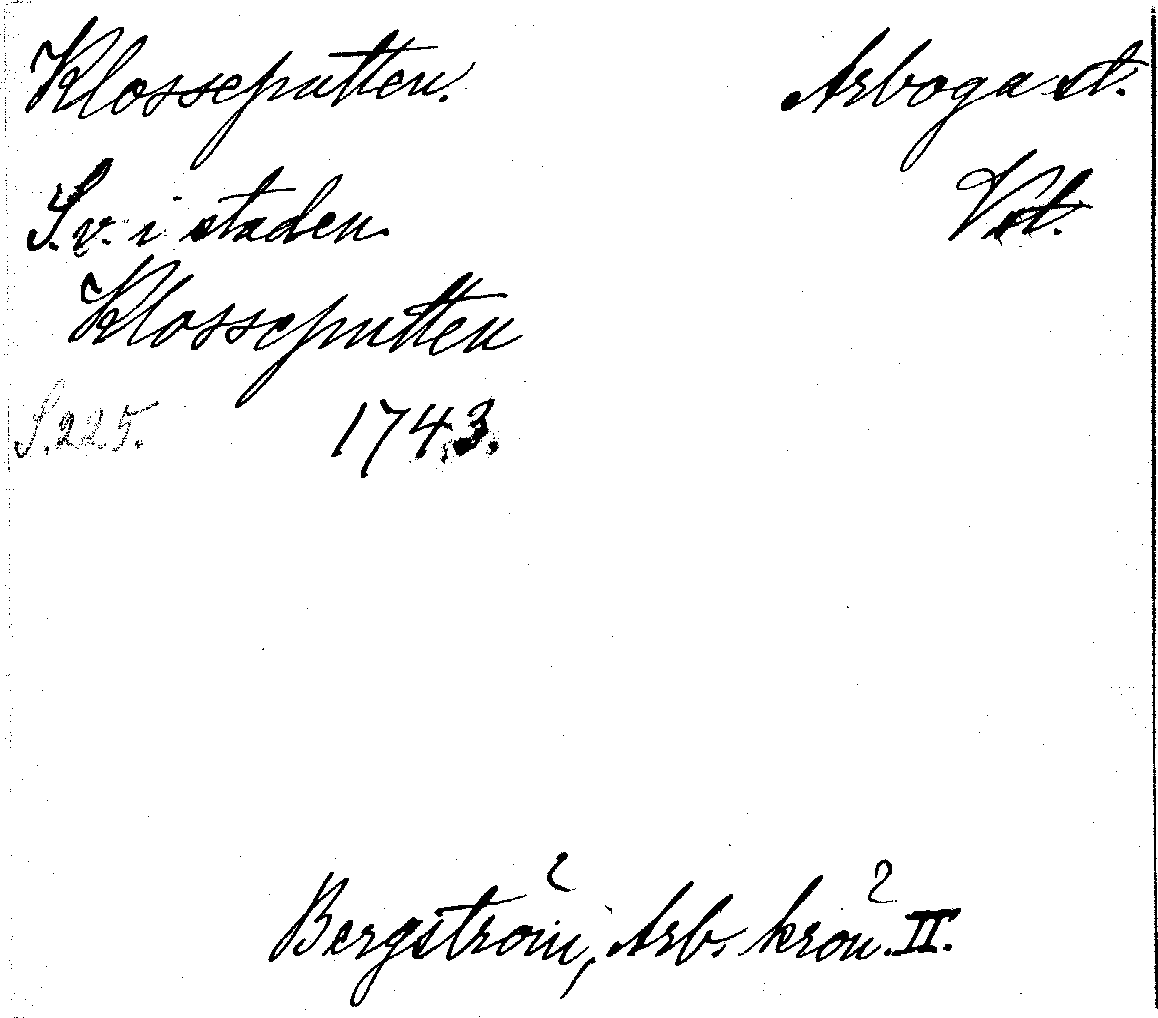 Klosseputten. Arboga st.
S.v. i staden. Vst.
Klosseputten
S. 225. 1743.
Bergström, Arb. krön. II.